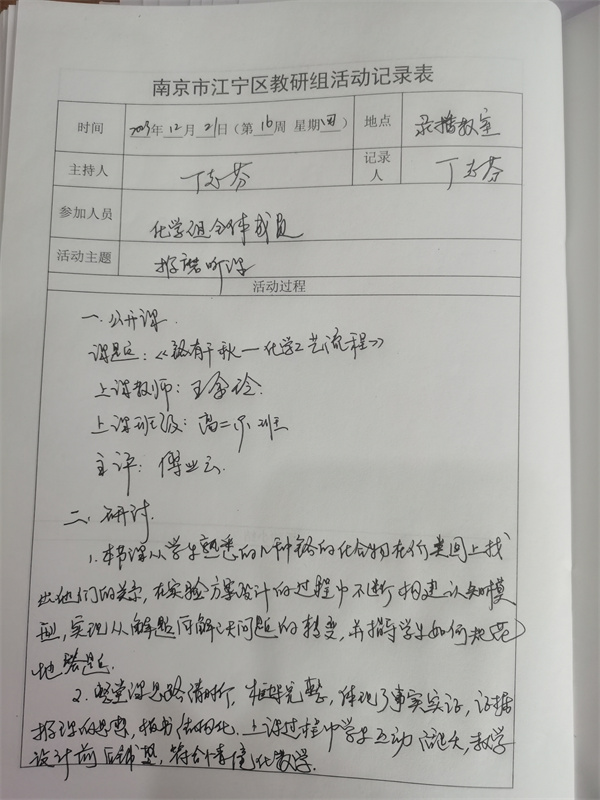 南京市江宁区教研组活动记录表
时间 2023年12月21日(第16周 星期四) 地点 录播教室
主持人 丁志芬 记录人 丁志芬
参加人员 化学组全体成员
活动主题 推磨听课
活动过程
一.公开课.
课题:《铬有千秋—化学工艺流程》
上课教师:王
上课班级:高二 班
主评:傅业云
二.研讨.
1.本节课从学生熟悉的几种铬的化合物在价类图上找
出他们的关系,在实验方案设计的过程中不断构建认知模
型,实现从解题向解决问题的转变,并指导学生如何规范
地答题.
2.整堂课思路清晰,框架完整,体现了事实实证,证据
推理的思想,板书结构化.上课过程中学生互动 ,教学
设计前后铺垫,符合情境化教学.